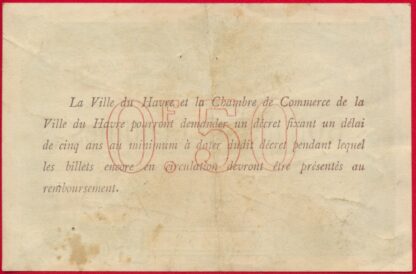 La Ville du Havre et la Chambre de Commerce de la
Ville du Havre pourront demander un décret fixant un délai
de cinq ans au minimum à dater dudit décret pendant lequel
les billets encore en circulation devront être présentés au
remboursement.
0F.50